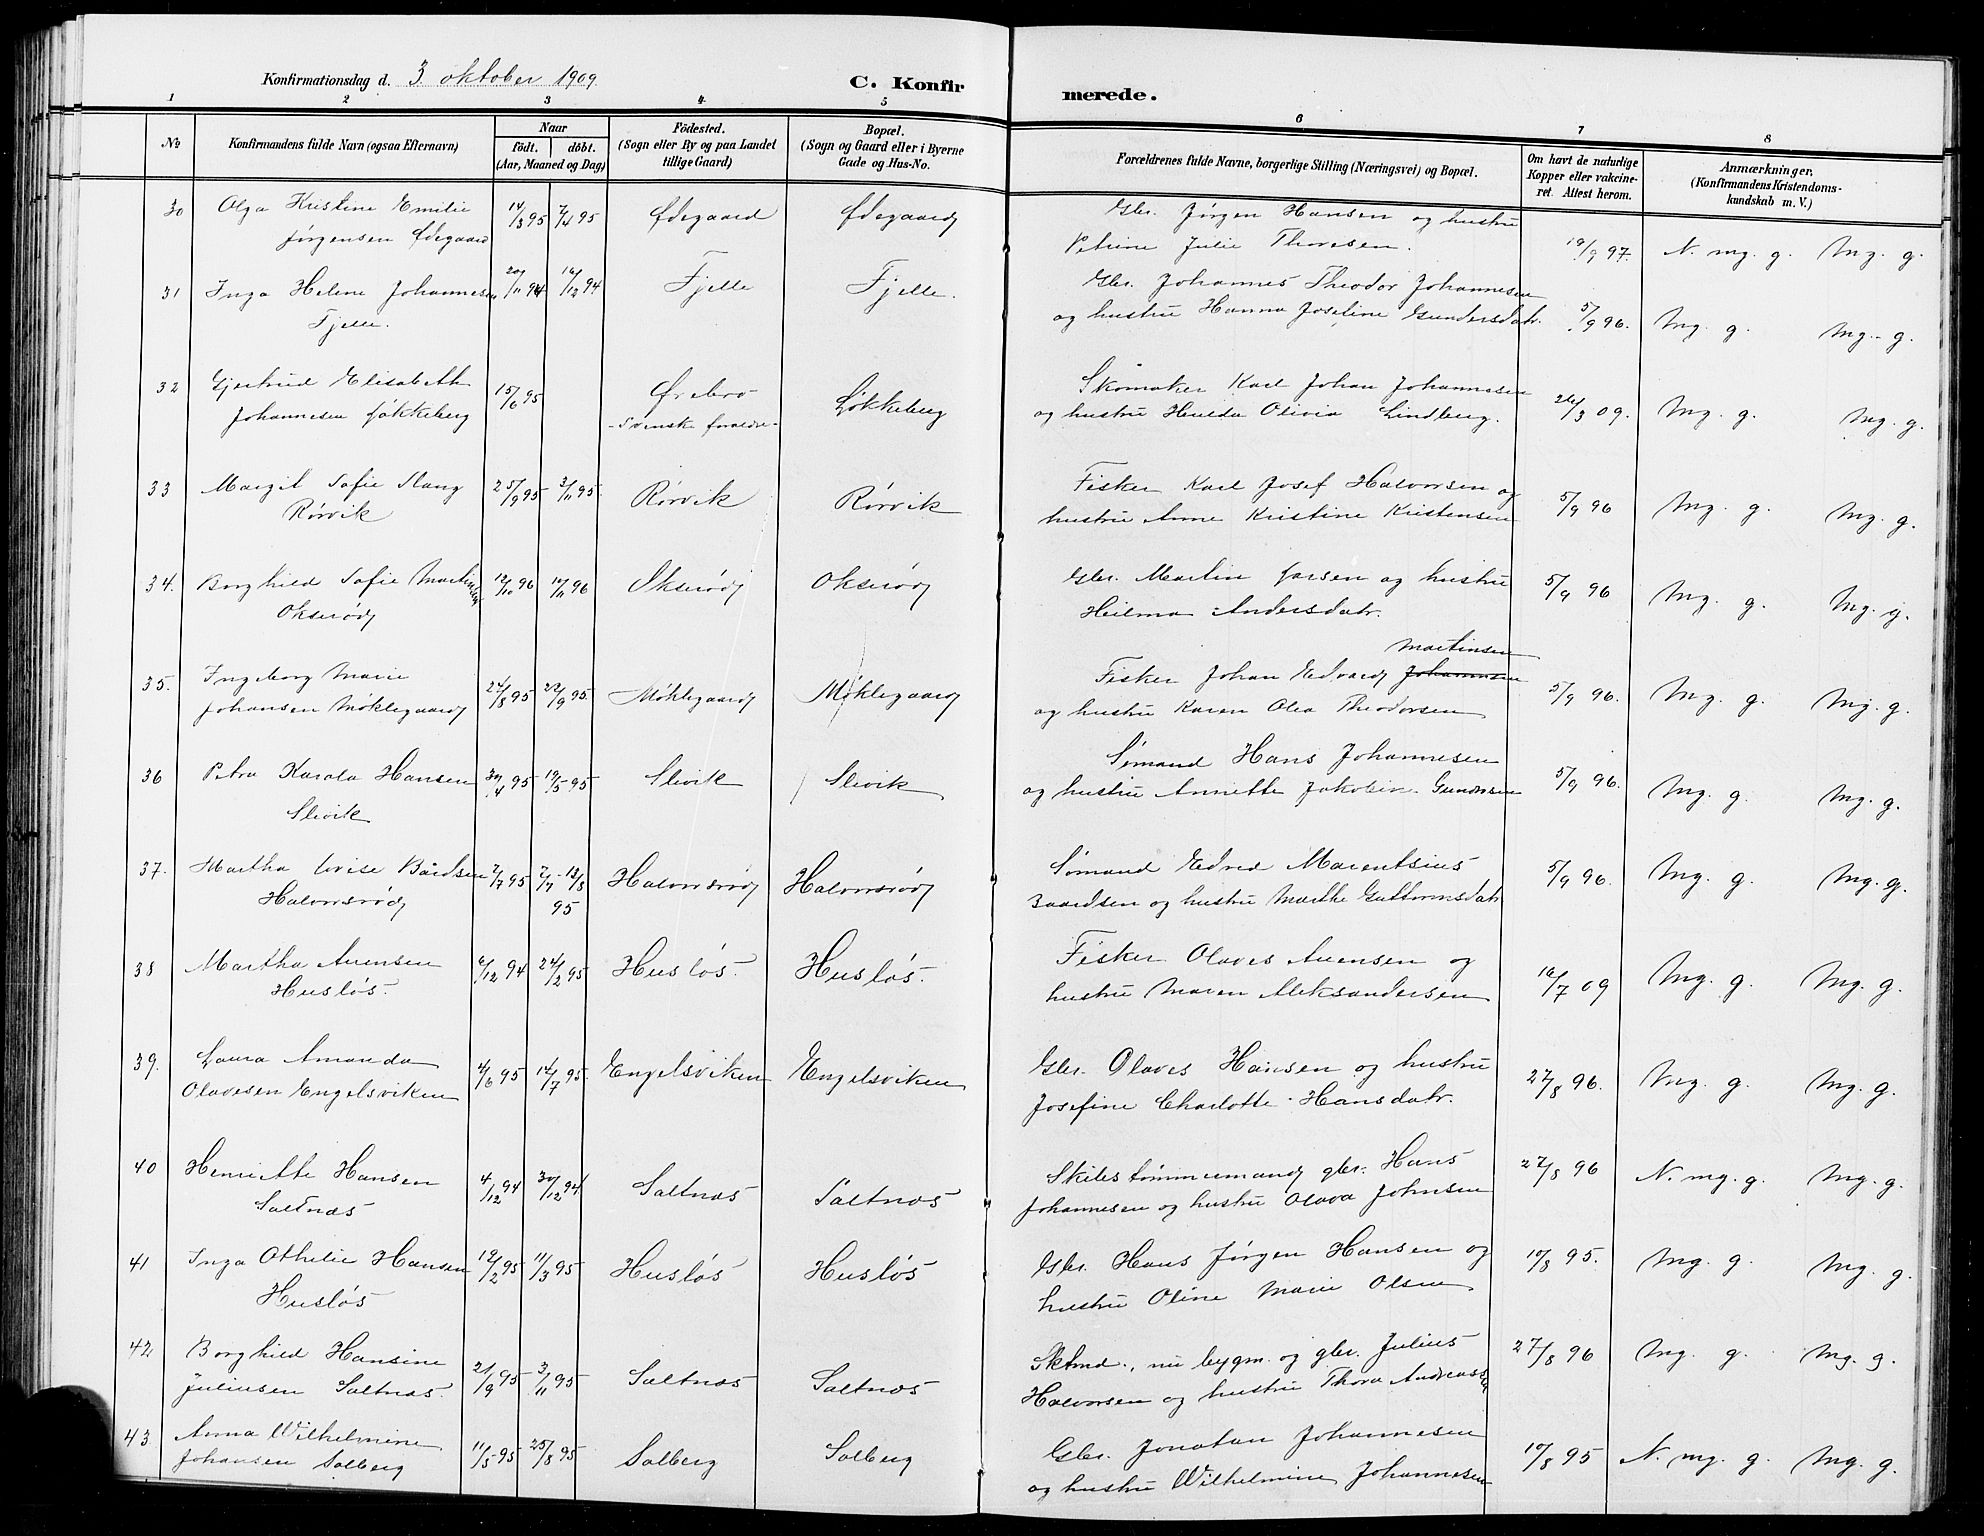 Konfirmationsdag d. 3. oktober 1909. C. Konfirmerede.
1 2 3 4 5 6 7 8
No Konfirmandens fulde Navn (ogsaa Efternavn) Naar födt. döbt. (Aar, Maaned og Dag) Födested. (Sogn eller By og paa Landet tillige Gaard) Bopæl. (Sogn og Gaard eller i Byerne Gade og Hus-No. Forældrenes fulde Navne, borgerlige Stilling (Næringsvei) og Bopæl. Om havt de naturlige Kopper eller vakcineret. Attest herom. Anmærkninger. (Konfirmandens Kristendomskundskab m. V.)
30 Olga Kristine Emilie 14/3 95 7/4 95 Ødegaard Ødegaard Gbr. Jørgen Hansen og hustru
Jørgensen Ødegaard Petrine Julie Thoresen. 19/9 97. N. mg. g. Mg. g.
31 Inga Helene Johannesen 20/11 94 16/12 94 Fjelle Fjelle. Gbr. Johannes Theodor Johannesen
Fjelle. og hustru Hanna Josefine Gundersdatr. 5/9 96. Mg. g. Mg. g.
32 Gjertrud Elisabeth 15/6 95 Ørebro Løkkeberg Skomaker Karl Johan Johannesen
Johannesen Løkkeberg - Svenske forældre - og hustru Hulda Olivia Lindberg. 26/3 09. Mg. g. Mg. g.
33 Margit Sofie Stang 25/9 95 3/11 95 Rørvik Rørvik Fisker Karl Josef Halvorsen og
Rørvik hustru Anne Kristine Kristensen 5/9 96 Mg. g. Mg. g.
34. Borghild Sofie Martinsen 12/10 96 14/11 96 Okserød Okserød Gbr. Martin Larsen og hustru
Okserød Heilma Andersdatr. 5/9 96 Mg. g. Mg. g.
35. Ingeborg Marie 24/8 95 22/9 95. Møklegaard Møklegaard Fisker Johan Edvard Johannsen Martinsen
Johansen Møklegaard og hustru Karen Olea Theodorsen 5/9 96. Mg. g. Mg. g.
36 Petra Karola Hansen 30/4 95 19/5 95 Slevik Slevik Sømand Hans Johannesen
Slevik og hustru Annette Jakobin. Gundersen 5/9 96. Mg. g. Mg. g.
37. Martha Lovise Bårdsen 2/7 95 7/7 - 18/8 95 Halvorsrød Halvorsrød Sømand Edvard Marentsius
Halvorsrød Baardsen og hustru Marthe Guttormsdatr 5/9 96. Mg. g. Mg. g.
38 Martha Auensen 6/12 94 24/2 95 Husløs. Husløs. Fisker Olaves Auensen og
Husløs. hustru Maren Aleksandersen 16/7 09 Mg. g. Mg. g.
39. Laura Amanda 4/6 95 14/7 95. Engelsviken Engelsviken Gbr. Olaves Hansen og hustru
Olavesen Engelsviken Josefine Charlotte Hansdatr. 27/8 96. Mg. g. Mg. g.
40 Henriette Hansen 4/12 94 30/12 94 Saltnæs Saltnæs Skibstømmermand gbr. Hans
Saltnæs Johannesen og hustru Olava Johnsen 27/8 96 N. mg. g. Mg. g.
41 Inga Othelie Hansen 12/2 95 11/3 95 Husløs Husløs Gbr. Hans Jørgen Hansen og
Husløs hustru Oline Marie Olsen 10/8 95. Mg. g. Mg. g.
42 Borghild Hansine 21/9 95 3/11 95 Saltnæs Saltnæs Sktmd., nu bygm. og gbr. Julius
Juliusen Saltnæs. Halvorsen og hustru Thora Andreassen 27/8 96 Mg. g. Mg. g.
43 Anna Wilhelmine 11/5 95 25/8 95 Solberg Solberg Gbr. Jonatan Johannesen
Johansen Solberg og hustru Wilhelmine Johannesen 10/8 95 N. mg. g. Mg. g.